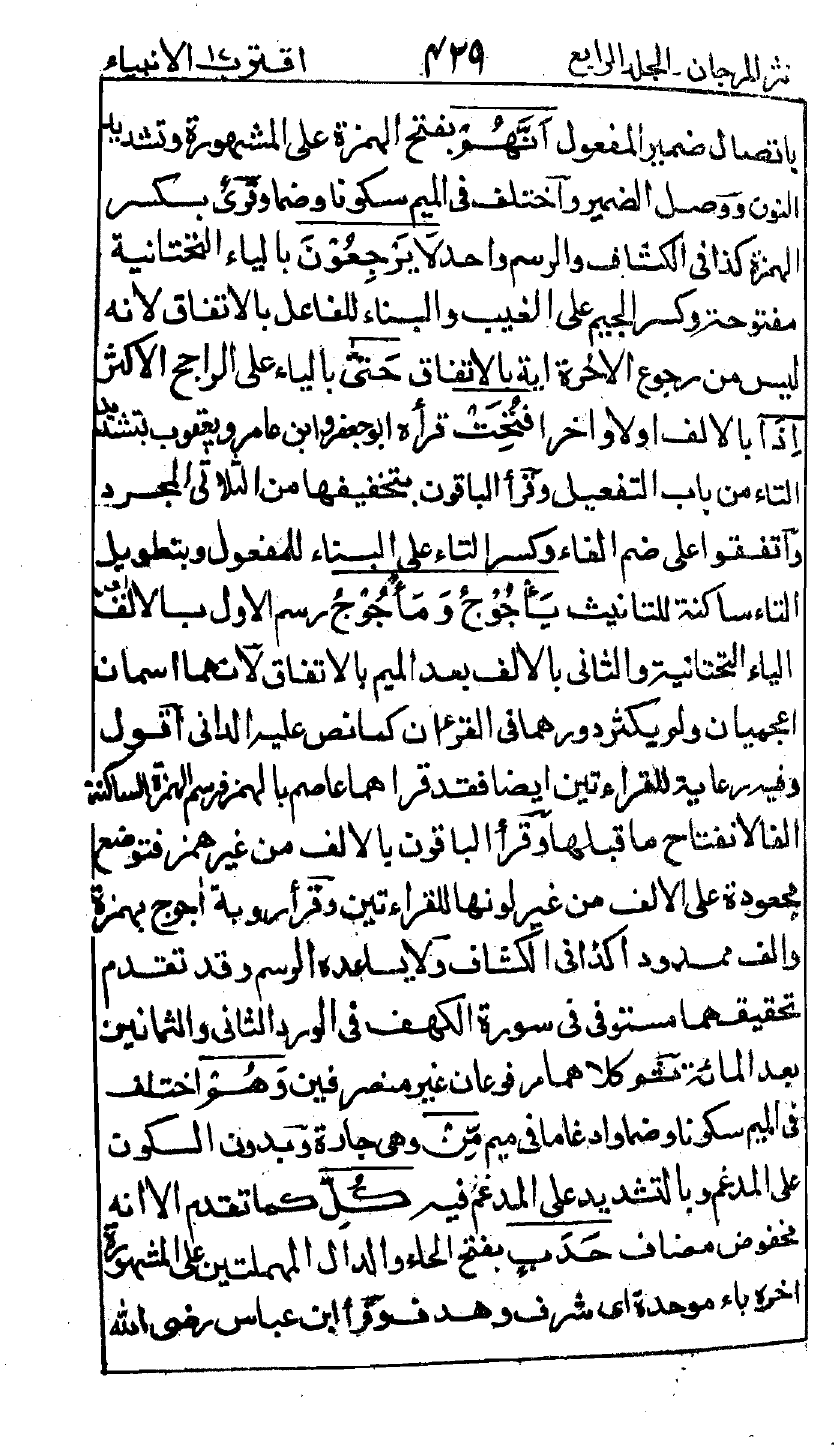 نثر المرجان - المجلد الرابع ٤٢٩ اقترب ١٧ الانبياء
باتصال ضمير المفعول اَنَّهُمْ بفتح الهمزة على المشهورة وتشديد
النون ووصل الضمير واختلف فى الميم سكونا وضما وقرئ بكسر
الهمزة كذا فى الكشاف والرسم واحد لَا يَرْجِعُوْنَ بالياء التحتانية
مفتوحة وكسر الجيم على الغيب والبناء للفاعل بالاتفاق لانه
ليس من رجوع الاخرة اية بالاتفاق حَتّٰى بالياء على الراجح الاكثر
اِذَا بالالف اولا واخرا فُتِحَتْ قرأه ابو جعفر وابن عامر ويعقوب بتشديد
التاء من باب التفعيل وقرأ الباقون بتخفيفها من الثلاثى المجرد
واتفقوا على ضم الفاء وكسر التاء على البناء للمفعول وبتطويل
التاء ساكنة للتانيث يَأْجُوْجُ وَ مَأْجُوْجُ رسم الاول بالالف بعد
الياء التحتانية والثانى بالالف بعد الميم بالاتفاق لانهما اسمان
اعجميان ولم يكثر دورهما فى القرءان كما نص عليه الدانى اقول
وفيه رعاية للقراءتين ايضا فقد قرا هما عاصم بالهمز فرسم الهمزة الساكنة
الفا لانفتاح ما قبلها وقرأ الباقون بالالف من غير همز فتوضع
مجعودة على الالف من غير لونها للقراءتين وقرأ روبة اجوج بهمزة
والف ممدود اكذا فى الكشاف ولا يساعده الرسم وقد تقدم
تحقيقهما مستوفى فى سورة الكهف فى الورد الثانى والثمانين
بعد المائة ثم كلاهما مرفوعان غير منصرفين وَهُمْ اختلف
فى الميم سكونا وضما وادغاما فى ميم مِّنْ وهى جارة وبدون السكون
على المدغم وبالتشديد على المدغم فيه كُلِّ كما تقدم الا انه
مخفوض مضاف حَدَبٍ بفتح الحاء والدال المهملتين على المشهورة
اخره باء موحدة اى شرف وهدف وقرأ ابن عباس رضى الله